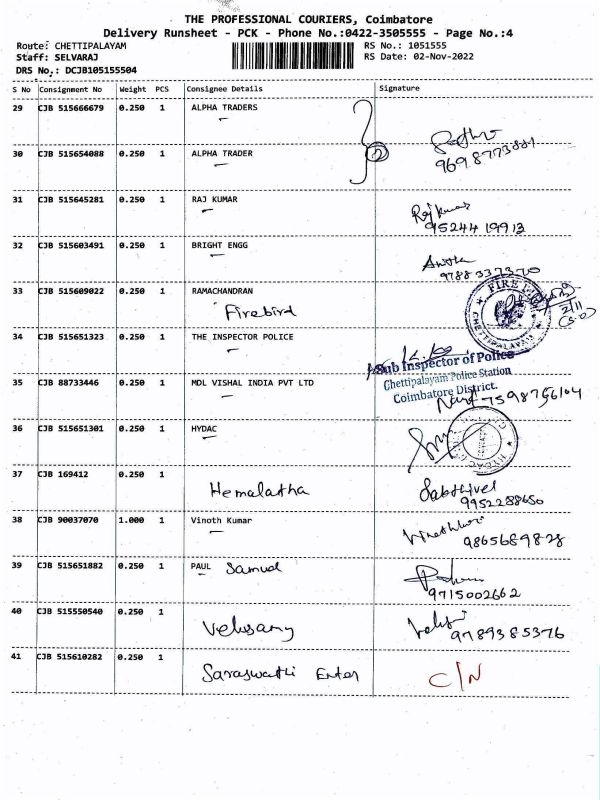 THE PROFESSIONAL COURIERS, Coimbatore
Delivery Runsheet - PCK - Phone No.:0422-3505555 - Page No.:4
Route: CHETTIPALAYAM RS No.: 1051555
Staff: SELVARAJ RS Date: 02-Nov-2022
DRS No.: DCJB105155504
S No Consignment No Weight PCS Consignee Details Signature
29 CJB 515666679 0.250 1 ALPHA TRADERS
30 CJB 515654088 0.250 1 ALPHA TRADER 2
9698773881
31 CJB 515645281 0.250 1 RAJ KUMAR Rajkumar
9524419913
32 CJB 515603491 0.250 1 BRIGHT ENGG Anitha
9788337320
33 CJB 515609022 0.250 1 RAMACHANDRAN
Firebird
FIRE
CHETTIPALAYAM
2/11
34 CJB 515651323 0.250 1 THE INSPECTOR POLICE
Sub Inspector of Police
Chettipalayam Police Station
Coimbatore District.
35 CJB 88733446 0.250 1 MDL VISHAL INDIA PVT LTD
7598756104
36 CJB 515651301 0.250 1 HYDAC
HYDAC
37 CJB 169412 0.250 1
Hemalatha Sabthivel
9952288650
38 CJB 90037070 1.000 1 Vinoth Kumar
9865689828
39 CJB 515651882 0.250 1 PAUL Samuel
9715002662
40 CJB 515550540 0.250 1
Velusamy
9789385376
41 CJB 515610282 0.250 1
Saraswathi Enter C/N